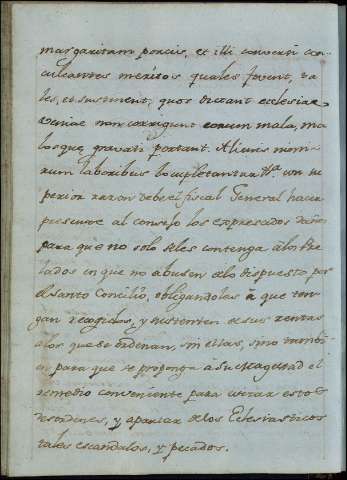 margaritam porcis, et illi conversi con
culcantes meritos quales fovent, ta
les, et sustinent, quos dictant ecclesiae
veniae non corrigunt eorum mala, ma
losque gravati portant. Alienis nimi
rum laboribus locupletantur &a. con su
perior razon debe el fiscal General hacer
presente al consejo los expresados daños
para que no solo se les contenga a los Pre
lados en que no abusen de lo dispuesto por
el Santo Concilio, obligandolas à que ten
gan recogidos, y sustenten de sus rentas
a los que se ordenan, sin ellas, sino tambi
en para que se proponga à Su Magestad el
remedio conveniente para evitar esto
desordenes, y apartar de los Eclesiasticos
tales escandalos, y pecados.